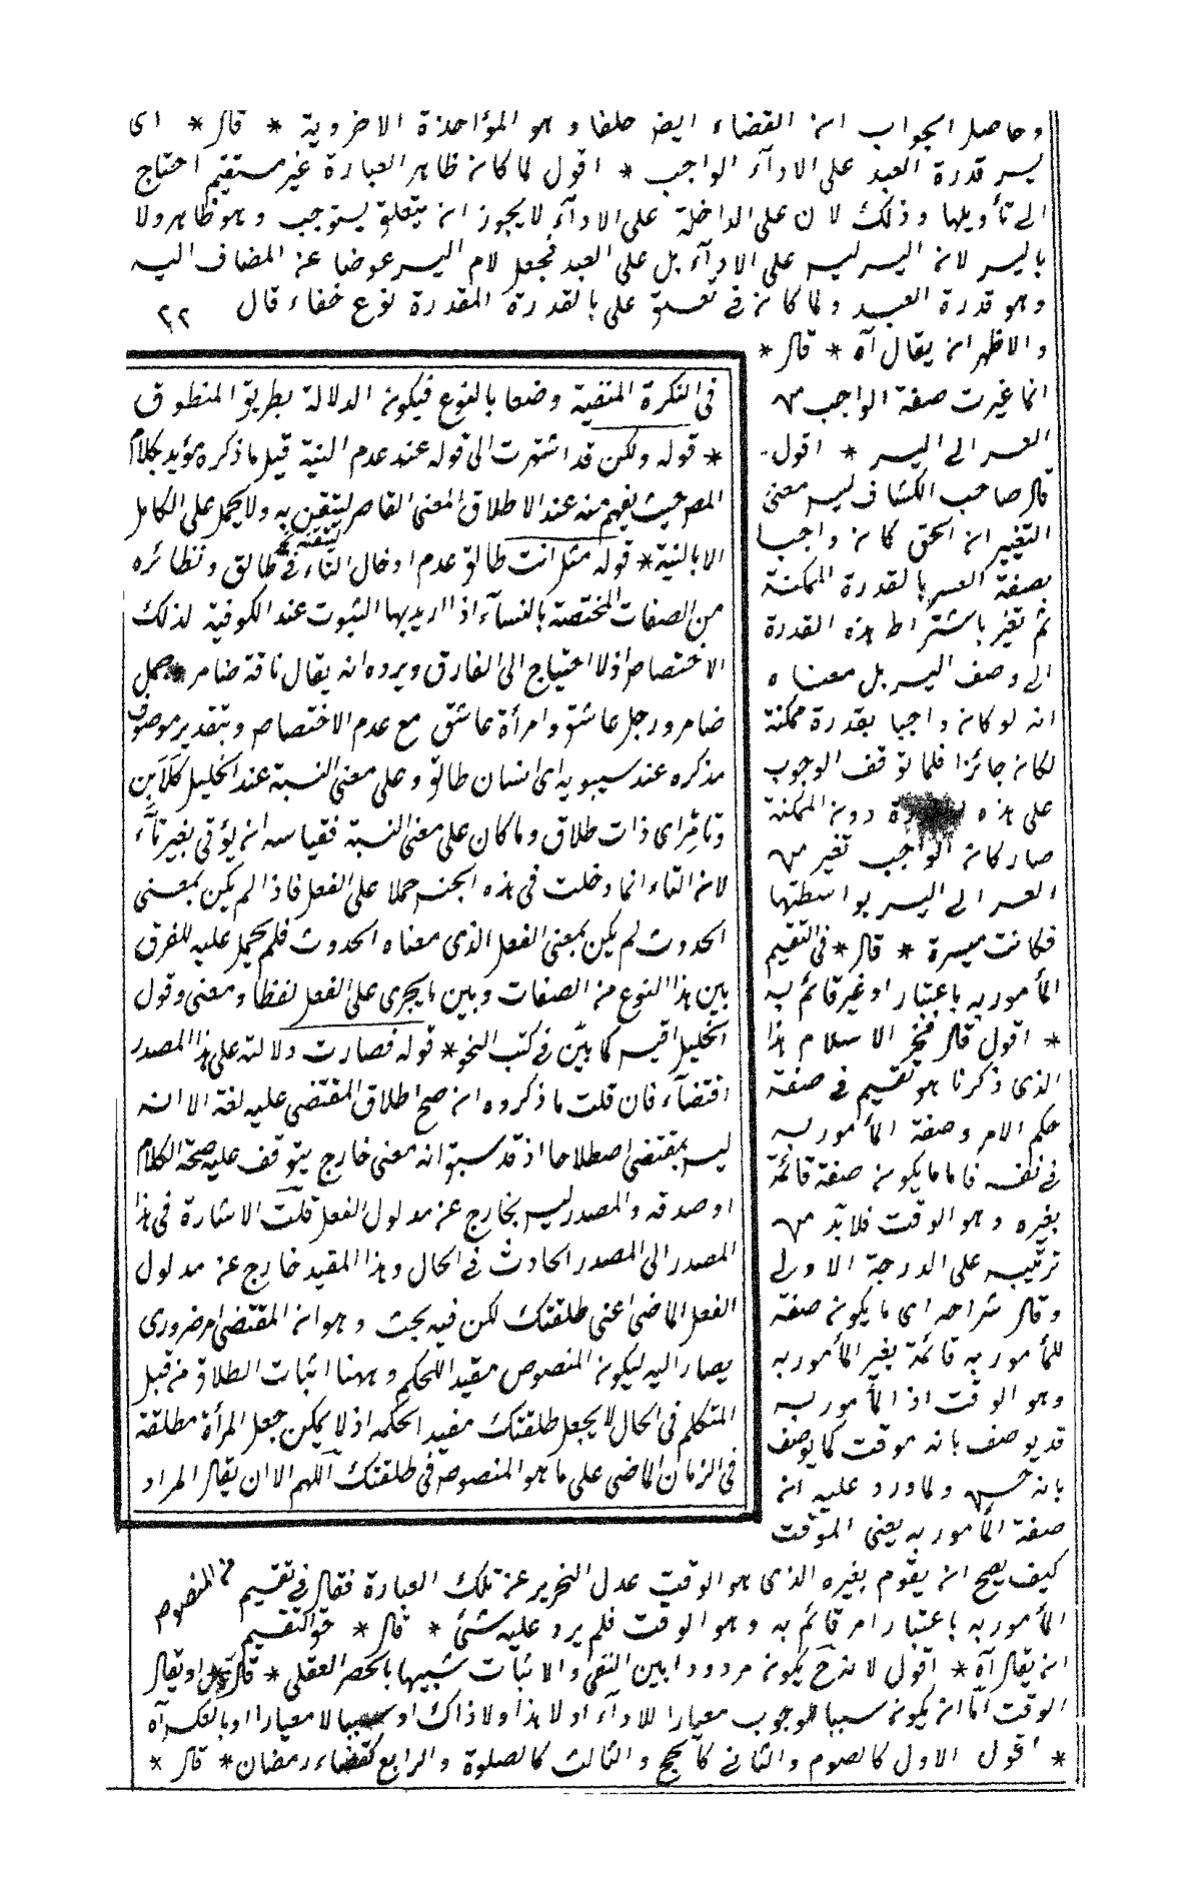 وحاصل الجواب ان القضاء ايض خلفا وهو المؤاخذة الاخروية * قال * اى
يسر قدرة العبد على الاداء الواجب * اقول لما كان ظاهر العبارة غير مستقيم احتاج
الى تأويلها وذلك لان على الداخلة على الاداء لا يجوز ان يتعلق بيستوجب وهو ظاهر ولا
باليسر لان اليسر ليس على الاداء بل على العبد فجعل لام اليسر عوضا عن المضاف اليه
وهو قدرة العبد ولما كان فى تعلق على بالقدرة المقدرة نوع خفاء قال ٢٢
والاظهر ان يقال آه * قال *
انما غيرت صفة الواجب من
العسر الى اليسر * اقول
قال صاحب الكشاف ليس معنى
التغيير ان الحق كان واجبا
بصفة العسر بالقدرة الممكنة
ثم تغير باشتراط هذه القدرة
الى وصف اليسر بل معناه
انه لو كان واجبا بقدرة ممكنة
لكان جائزا فلما توقف الوجوب
على هذه دون الممكنة
صار كان الواجب تغير من
العسر الى اليسر بواسطتها
فكانت ميسرة * قال * فى التقسيم
المأمور به باعتبار او غير قائم به
* اقول قال فخر الاسلام هذا
الذى ذكرنا هو تقسيم فى صفة
حكم الامر وصفة المأمور به
فى نفسه فاما ما يكون صفة قائمة
بغيره وهو الوقت فلابد من
ترتيبه على الدرجة الاولى
وقال شراحه اى ما يكون صفة
للمأمور به قائمة بغير المأمور به
وهو الوقت اذ المأمور به
قد يوصف بانه موقت كما يوصف
بانه حسن ولما ورد عليه ان
صفة المأمور به يعنى الموقت
كيف يصح ان يقوم بغيره الذى هو الوقت عدل النحرير عن تلك العبارة فقال فى تقسيم
المأمور به باعتبار امر قائم به وهو الوقت فلم يرد عليه شئ * قال * حق التقسيم
ان يقال آه * اقول لانه ح يكون مرددا بين النفى والاثبات شبيها بالحصر العقلى * قال * او تقال
الوقت اما ان يكون سببا للوجوب معيارا للاداء او لا هذا ولا ذاك او سببا لا معيارا او بالعكس آه
* اقول الاول كالصوم والثانى كالحج والثالث كالصلوة والرابع كقضاء رمضان * قال *
فى النكرة المنفية وضعا بالنوع فيكون الدلالة بطريق المنطوق
* قوله ولكن قد اشتهرت الى قوله عند عدم النية قيل ما ذكره مؤيد بكلام
المص حيث يفهم منه عند الاطلاق المعنى القاصر لتيقن به ولا يحمل على الكامل
الا بالنية * قوله مثل انت طالق عدم ادخال التاء فى طالق ونظائره
من الصفات المختصة بالنساء اذا اريد بها الثبوت عند الكوفية لذلك
الاختصاص اذ لا احتياج الى الفارق ويرده انه يقال ناقة ضامر وجمل
ضامر ورجل عاشق وامرأة عاشق مع عدم الاختصاص وبتقدير موصوف
مذكره عند سيبويه اى انسان طالق وعلى معنى النسبة عند الخليل كلابن
وتامر اى ذات طلاق وما كان على معنى النسبة فقياسه ان يؤتى بغير تاء
لان التاء انما دخلت فى هذه الجنس حملا على الفعل فاذا لم يكن بمعنى
الحدوث لم يكن بمعنى الفعل الذى معناه الحدوث فلم يحمل عليه للفرق
بين هذا النوع من الصفات وبين ما يجرى على الفعل لفظا ومعنى وقول
الخليل اقيس كما بين فى كتب النحو * قوله فصارت دلالته على هذا المصدر
اقتضاء فان قلت ما ذكروه ان صح اطلاق المقتضى عليه لغة الا انه
ليس بمقتضى اصطلاحا اذ قد سبق انه معنى خارج يتوقف عليه صحة الكلام
او صدقه والمصدر ليس بخارج عن مدلول الفعل قلت الاشارة فى هذا
المصدر الى المصدر الحادث فى الحال وهذا المقيد خارج عن مدلول
الفعل الماضى اعنى طلقتك لكن فيه بحث وهو ان المقتضى امر ضرورى
يصار اليه ليكون المنصوص مفيد اللحكم وههنا اثبات الطلاق من قبل
المتكلم فى الحال لا يجعل طلقتك مفيد الحكمه اذ لا يمكن جعل المرأة مطلقة
فى الزمان الماضى على ما هو المنصوص فى طلقتك اللهم الا ان يقال المراد
من المنصوص